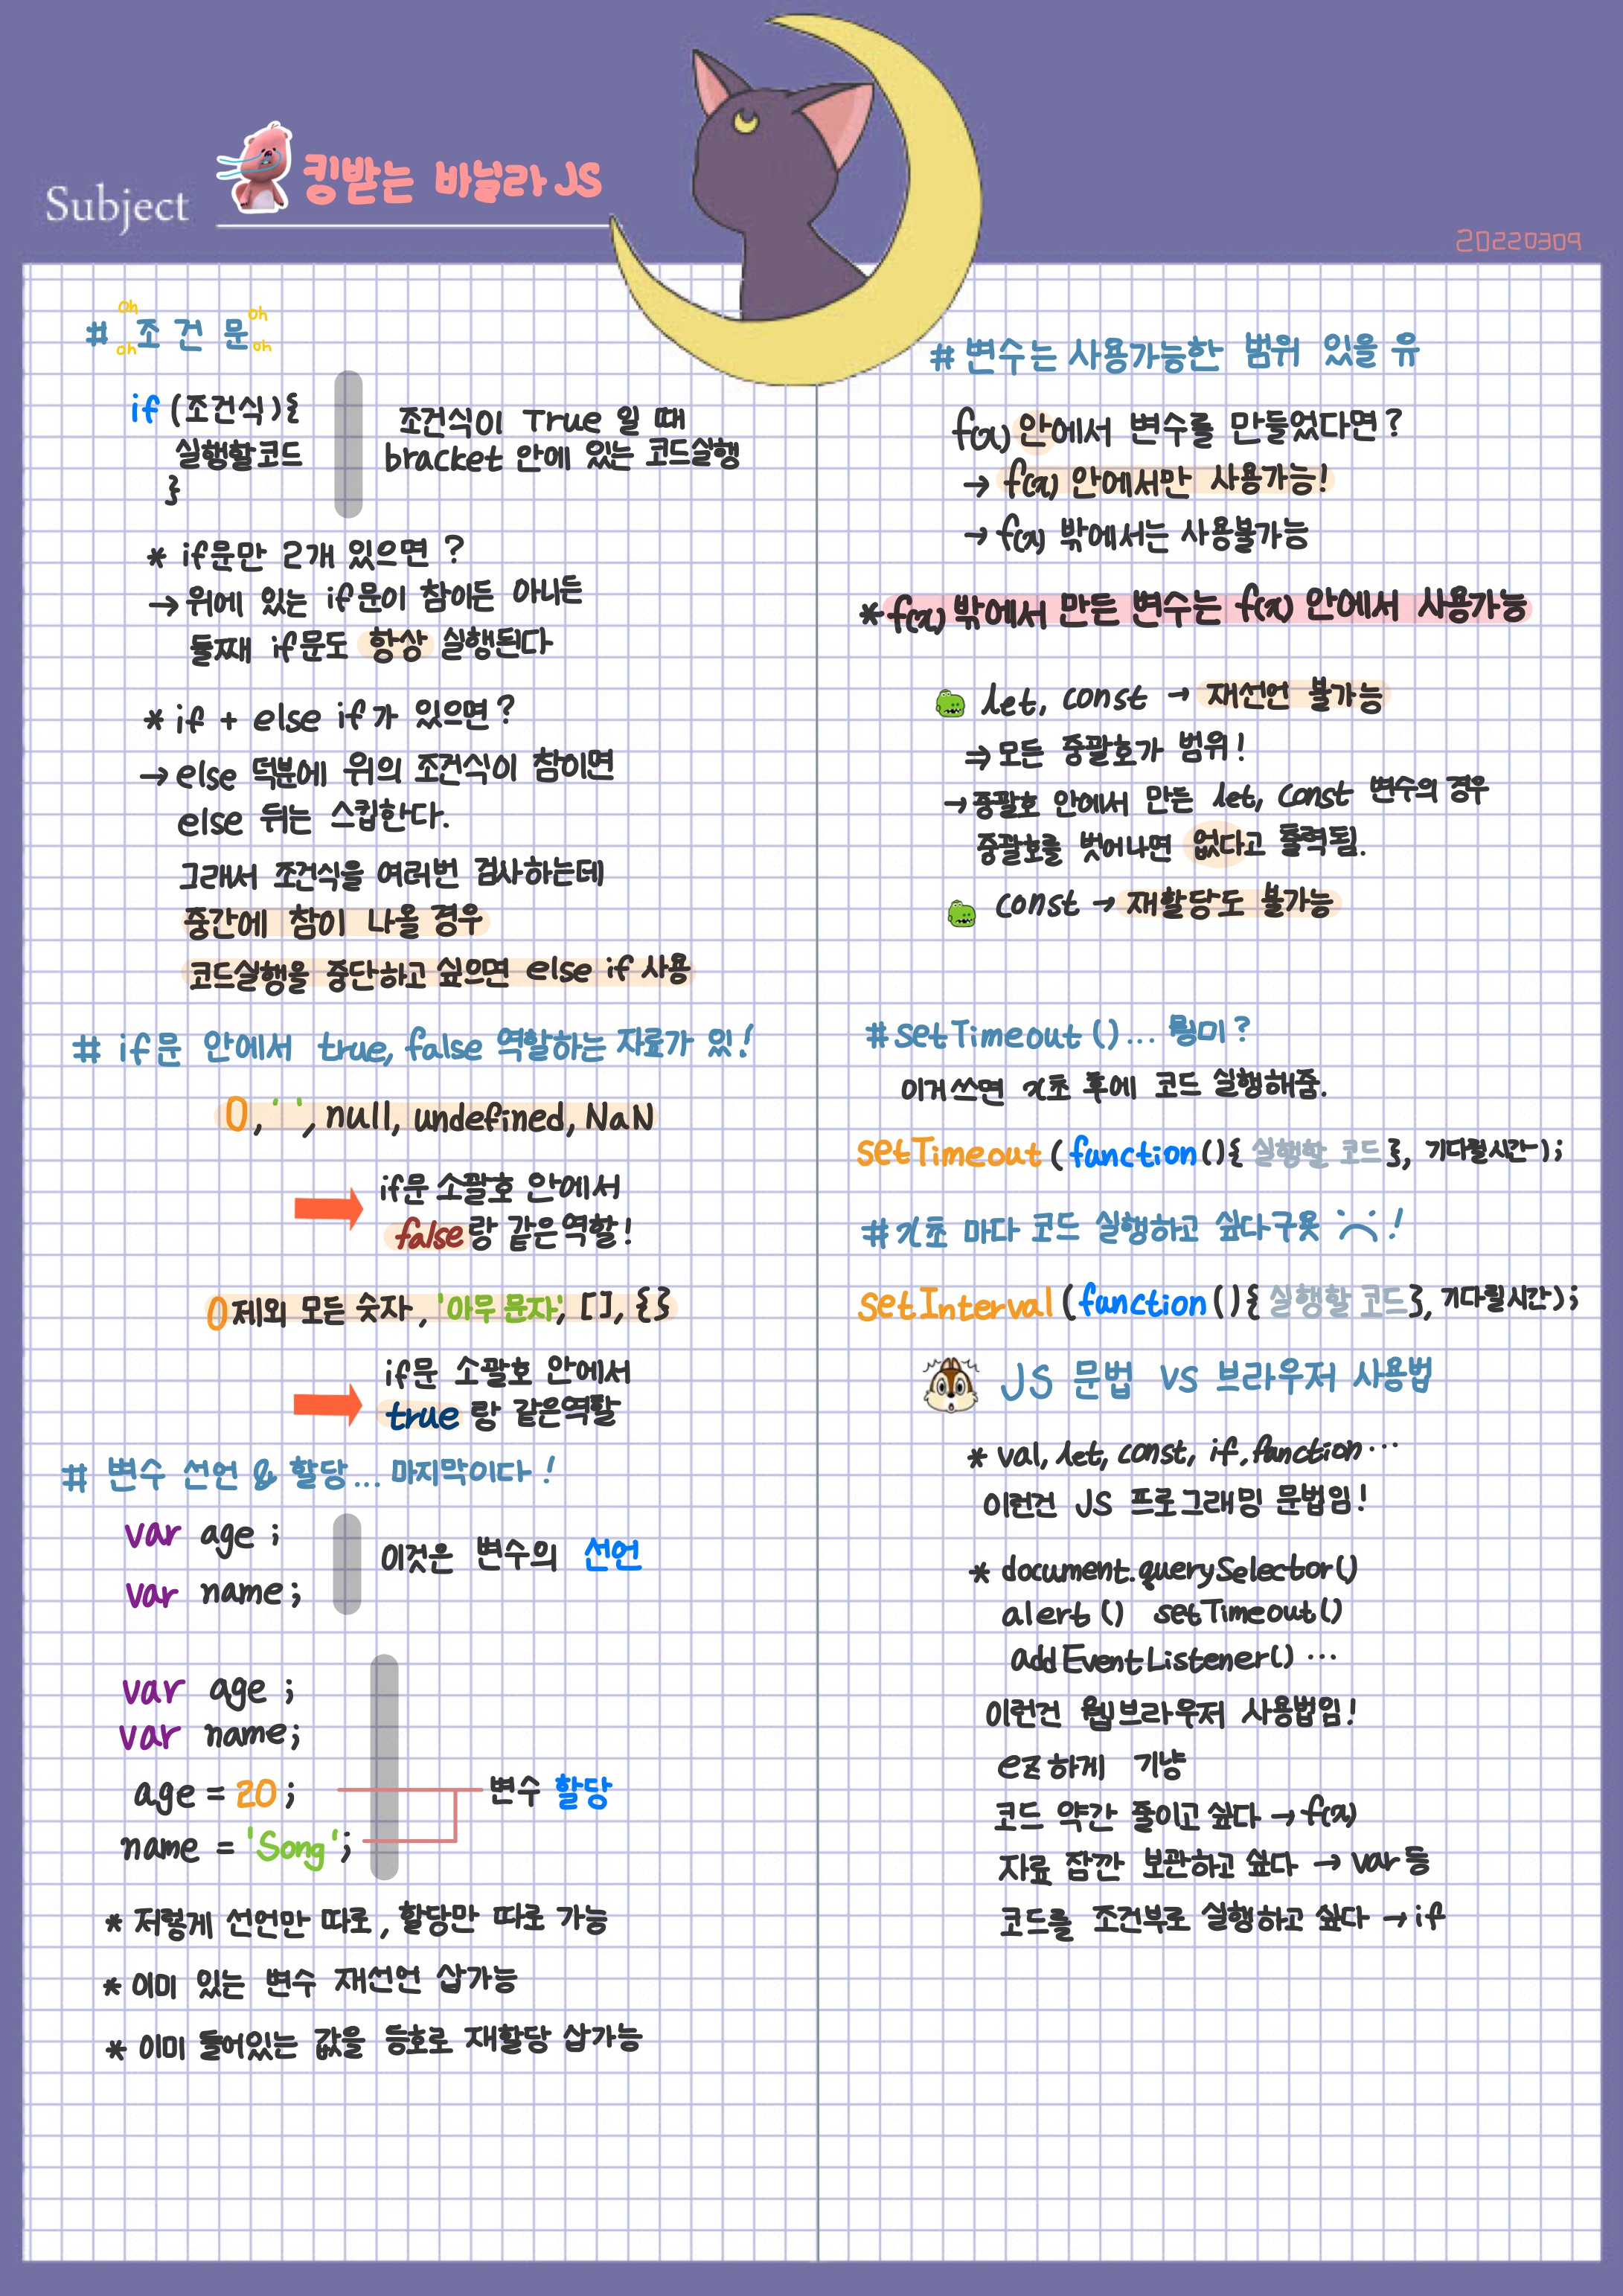 Subject
킹받는 바닐라 JS
20220309
# 조건문
oh
oh
oh
oh
if (조건식){
실행할코드
}
조건식이 True 일 때
bracket 안에 있는 코드실행
* if문만 2개 있으면?
→ 위에 있는 if문이 참이든 아니든
둘째 if문도 항상 실행된다
* if + else if가 있으면?
→ else 덕분에 위의 조건식이 참이면
else 뒤는 스킵한다.
그래서 조건식을 여러번 검사하는데
중간에 참이 나올 경우
코드실행을 중단하고 싶으면 else if 사용
# if문 안에서 true, false 역할하는 자료가 있!
0, ' ', null, undefined, NaN
if문 소괄호 안에서
false랑 같은역할!
0제외 모든 숫자, '아무 문자', [], {}
if문 소괄호 안에서
true 랑 같은역할
# 변수 선언 & 할당... 마지막이다!
var age ;
var name;
이것은 변수의 선언
var age ;
var name;
age = 20 ;
name = 'Song';
변수 할당
* 저렇게 선언만 따로, 할당만 따로 가능
* 이미 있는 변수 재선언 삽가능
* 이미 들어있는 값을 등호로 재할당 삽가능
# 변수는 사용가능한 범위 있을 유
f(x) 안에서 변수를 만들었다면?
→ f(x) 안에서만 사용가능!
→ f(x) 밖에서는 사용불가능
* f(x) 밖에서 만든 변수는 f(x) 안에서 사용가능
let, const → 재선언 불가능
⇒ 모든 중괄호가 범위!
→ 중괄호 안에서 만든 let, const 변수의 경우
중괄호를 벗어나면 없다고 출력됨.
const → 재할당도 불가능
# setTimeout ()... 뭥미?
이거 쓰면 x초 후에 코드 실행해줌.
setTimeout (function(){ 실행할 코드 }, 기다릴시간);
# x초 마다 코드 실행하고 싶다구욧 !
setInterval (function(){ 실행할 코드}, 기다릴시간);
JS 문법 vs 브라우저 사용법
* val, let, const, if, function ...
이런건 JS 프로그래밍 문법임!
* document.querySelector()
alert() setTimeout()
addEventListener() ...
이런건 웹브라우저 사용법임!
ez하게 기냥
코드 약간 줄이고 싶다 → f(x)
자료 잠깐 보관하고 싶다 → var 등
코드를 조건부로 실행하고 싶다 → if